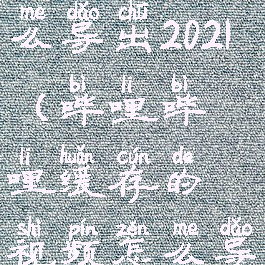 me dǎo chū
么导出2021
bì li bì
(哔哩哔
li huǎn cún de
哩缓存的
shì pín zěn me dǎo
视频怎么导